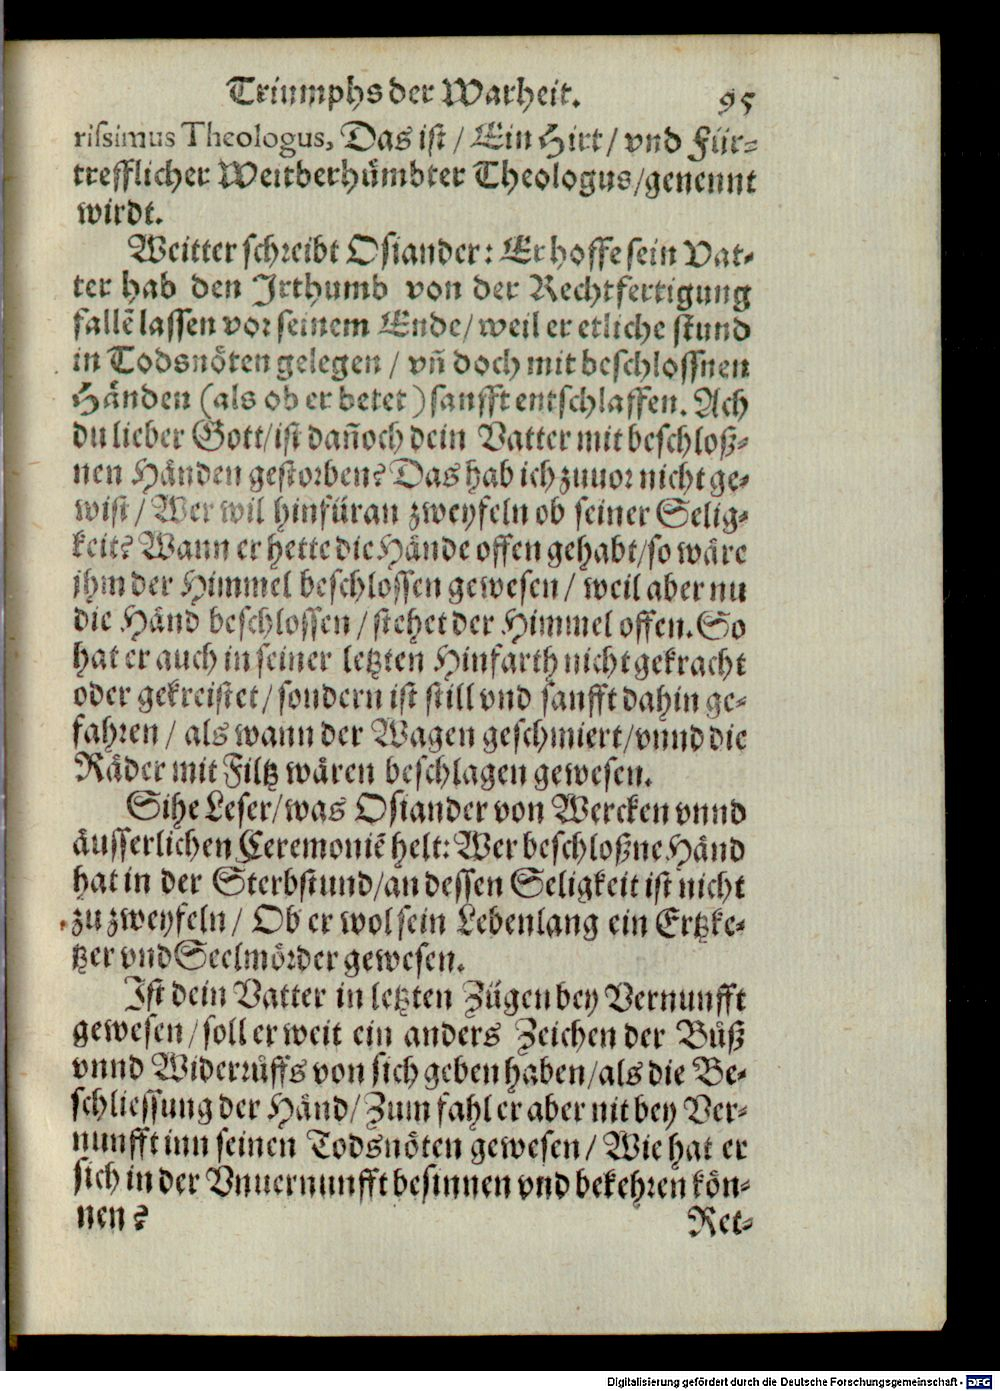 Triumphs der Warheit. 95
rissimus Theologus, Das ist / Ein Hirt / vnd Für-
trefflicher Weitberhümbter Theologus / genennt
wirdt.
Weitter schreibt Osiander: Er hoffe sein Vat-
ter hab den Irthumb von der Rechtfertigung
fallē lassen vor seinem Ende / weil er etliche stund
in Todsnöten gelegen / vn̄ doch mit beschlossnen
Händen (als ob er betet) sanfft entschlaffen. Ach
du lieber Gott / ist dan̄och dein Vatter mit beschloß-
nen Händen gestorben? Das hab ich zuuor nicht ge-
wist / Wer wil hinfüran zweyfeln ob seiner Selig-
keit? Wann er hette die Hände offen gehabt / so wäre
jhm der Himmel beschlossen gewesen / weil aber nu
die Händ beschlossen / stehet der Himmel offen. So
hat er auch in seiner letzten Hinfarth nicht gekracht
oder gekreistet / sondern ist still vnd sanfft dahin ge-
fahren / als wann der Wagen geschmiert / vnnd die
Räder mit Filtz wären beschlagen gewesen.
Sihe Leser / was Osiander von Wercken vnnd
äusserlichen Ceremoniē helt: Wer beschloßne Händ
hat in der Sterbstund / an dessen Seligkeit ist nicht
zu zweyfeln / Ob er wol sein Lebenlang ein Ertzke-
tzer vnd Seelmörder gewesen.
Ist dein Vatter in letzten Zügen bey Vernunfft
gewesen / soll er weit ein anders Zeichen der Buͦß
vnnd Widerruͦffs von sich geben haben / als die Be-
schliessung der Händ / Zum fahl er aber nit bey Ver-
nunfft inn seinen Todsnöten gewesen / Wie hat er
sich in der Vnuernunfft besinnen vnd bekehren kön-
nen? Ret-
Digitalisierung gefördert durch die Deutsche Forschungsgemeinschaft - DFG